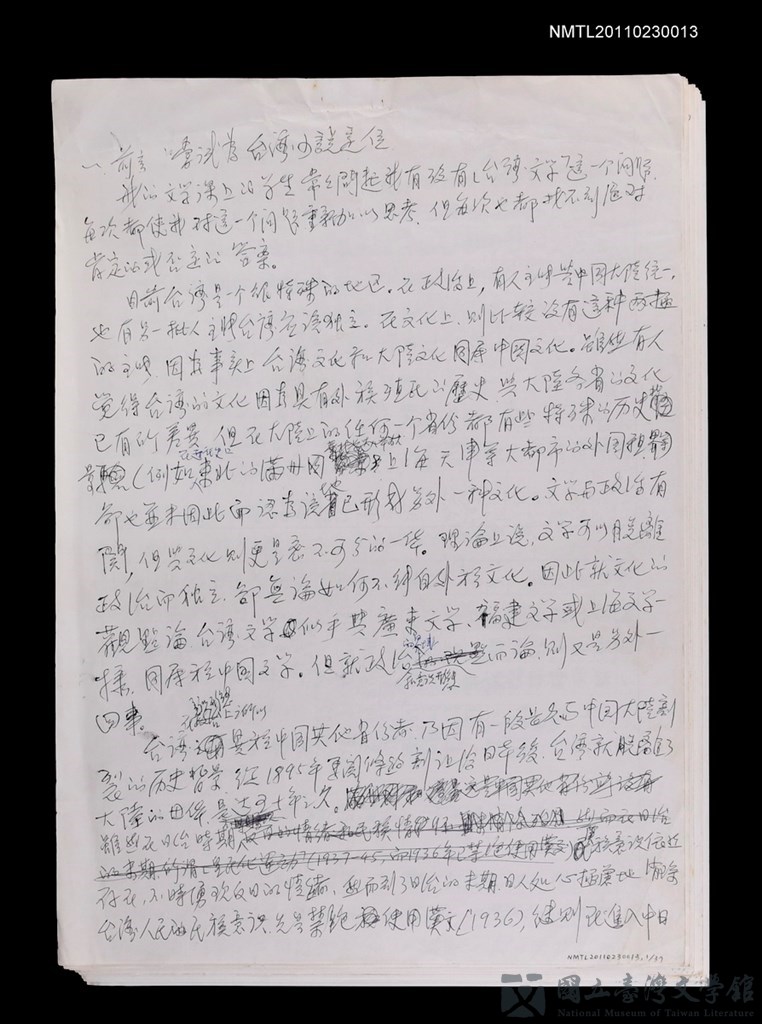 NMTL20110230013
一、前言：嘗試為台灣小說定位
我的文學課上的學生常常問起我有沒有「台灣文學」這一个问题，
每次都使我对這一个问題重新加以思考，但每次也都找不到绝对
肯定的或否定的答案。
目前台灣是一个很特殊的地区。在政治上，有人主張與中國大陸統一，
也有另一批人主張台灣应該独立。在文化上，則比較沒有這种两極
的主張，因為事实上台湾文化和大陸文化同屬中國文化。雖然有人
覺得台灣的文化因為具有外族殖民的歷史與大陸各省的文化
已有所差異，但在大陸上的任何一个省份都有些特殊的历史
（例如東北的滿州國 上海天津等大都市的外國租界）
卻也並未因此而認為該省已形成另外一种文化。文学与政治有
関，但與文化則更是密不可分的一体。理論上說，文学可以自外
政治而独立，卻無論如何不能自外於文化。因此就文化的
觀點論，台湾文学似乎與廣東文学、福建文学或上海文学一
樣，同屬於中國文学。但就政治 而論，則又是另外一
回事。
台湾 異於中國其他省份者，乃因有一段曾久与中國大陸割
裂的历史背景。從1895年馬関條約割让给日本後，台湾就脱離了
大陸的母体，達五十年之久。
雖然在日治時期 民族意識依然
存在，不時湧現反日的情緒，然而到了日治的末期，日人処心積慮地消除
台湾人民的民族意識，先是禁绝使用漢文（1936），继則在進入中日
NMTL20110230013, 1/37
國立臺灣文學館
National Museum of Taiwan Literature